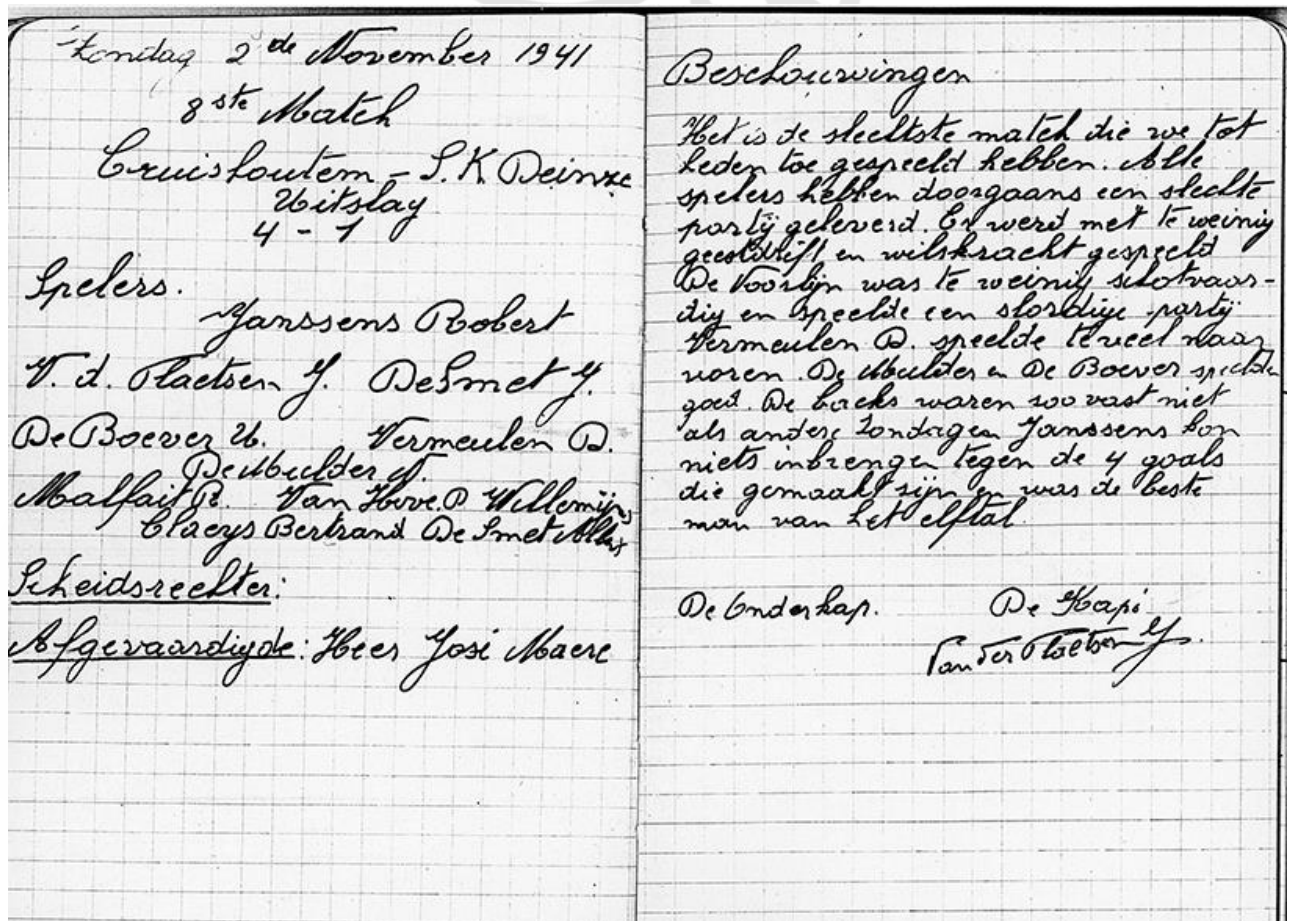 Zondag 2de November 1941
8ste Match
Cruishoutem - S.K. Deinze
Uitslag
4 - 1
Spelers.
Janssens Robert
V. d. Plaetsen Y. DeSmet Y.
De Boever U. Vermeulen D.
De Mulder N.
Malfait R. Van Hove. P Willemijns
Claeys Bertrand De Smet
Scheidsrechter:
Afgevaardigde: Heer José Maere
Beschouwingen
Het is de slechtste match die we tot
heden toe gespeeld hebben. Alle
spelers hebben doorgaans een slechte
partij geleverd. Er werd met te weinig
geestdrift en wilskracht gespeeld
De Voorlijn was te weinig schotvaar-
dig en speelde een slordige partij
Vermeulen D. speelde teveel naar
voren. De Mulder en De Boever speelden
goed. De backs waren zoo vast niet
als andere Zondagen Janssens kon
niets inbrengen tegen de 4 goals
die gemaakt zijn en was de beste
man van het elftal
De Onderkap. De Kapi
Van Der Plaetsen Y